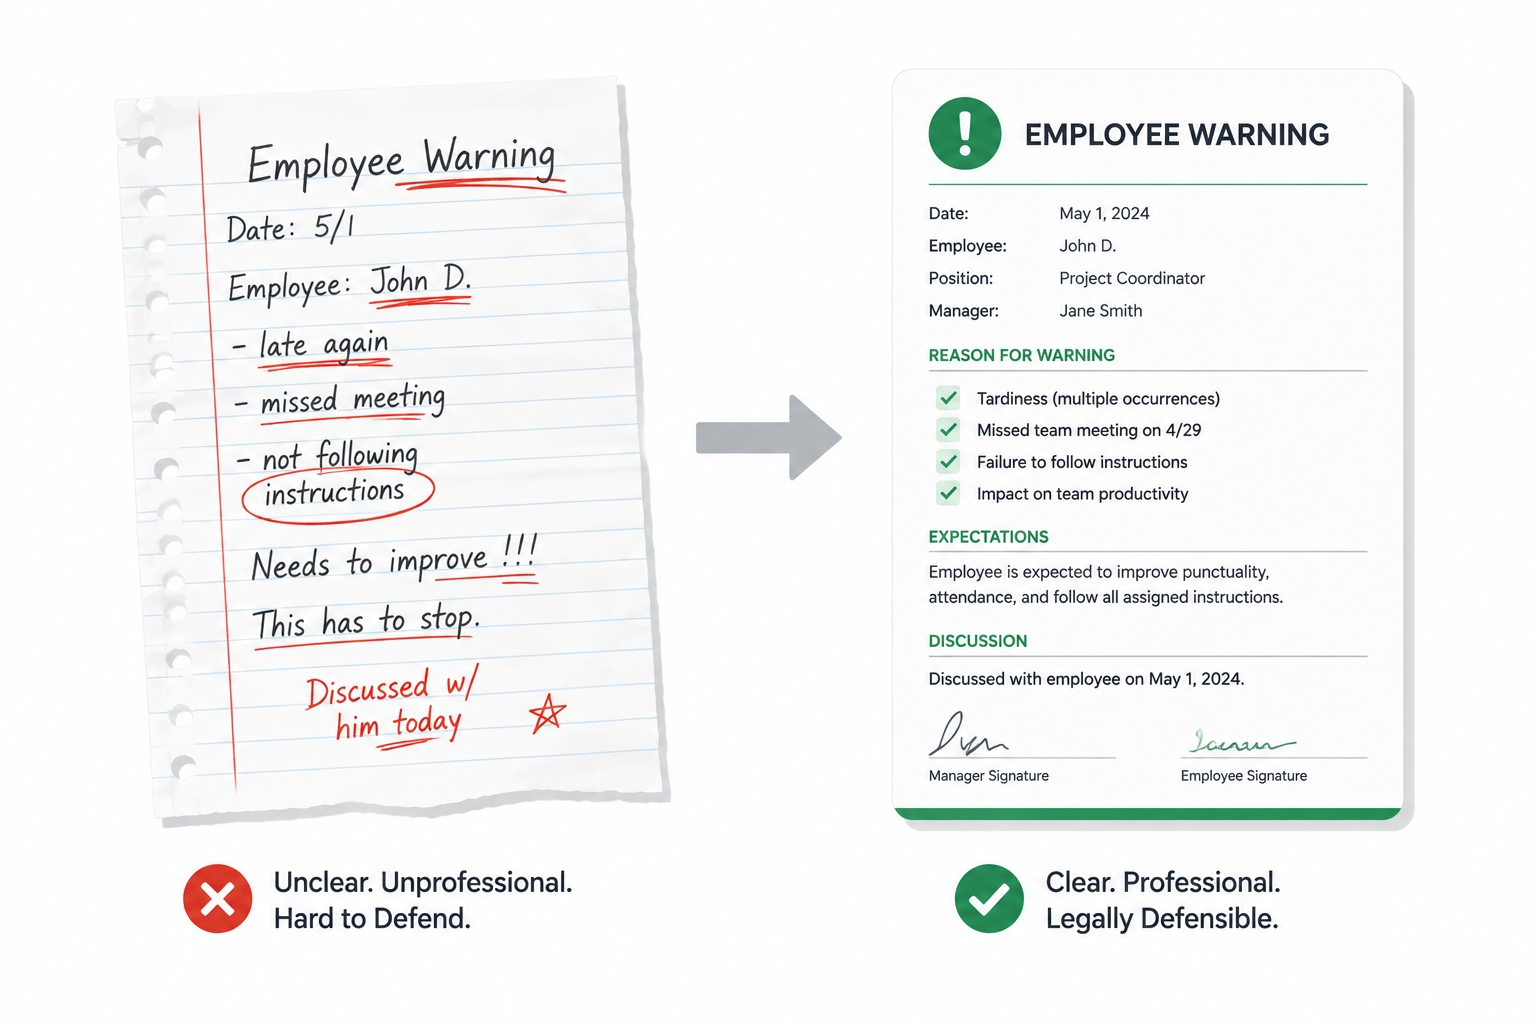 Employee Warning
Date: 5/1
Employee: John D.
- late again
- missed meeting
- not following
instructions
Needs to improve !!!
This has to stop.
Discussed w/
him today
Unclear. Unprofessional.
Hard to Defend.
EMPLOYEE WARNING
Date: May 1, 2024
Employee: John D.
Position: Project Coordinator
Manager: Jane Smith
REASON FOR WARNING
Tardiness (multiple occurrences)
Missed team meeting on 4/29
Failure to follow instructions
Impact on team productivity
EXPECTATIONS
Employee is expected to improve punctuality,
attendance, and follow all assigned instructions.
DISCUSSION
Discussed with employee on May 1, 2024.
Manager Signature Employee Signature
Clear. Professional.
Legally Defensible.